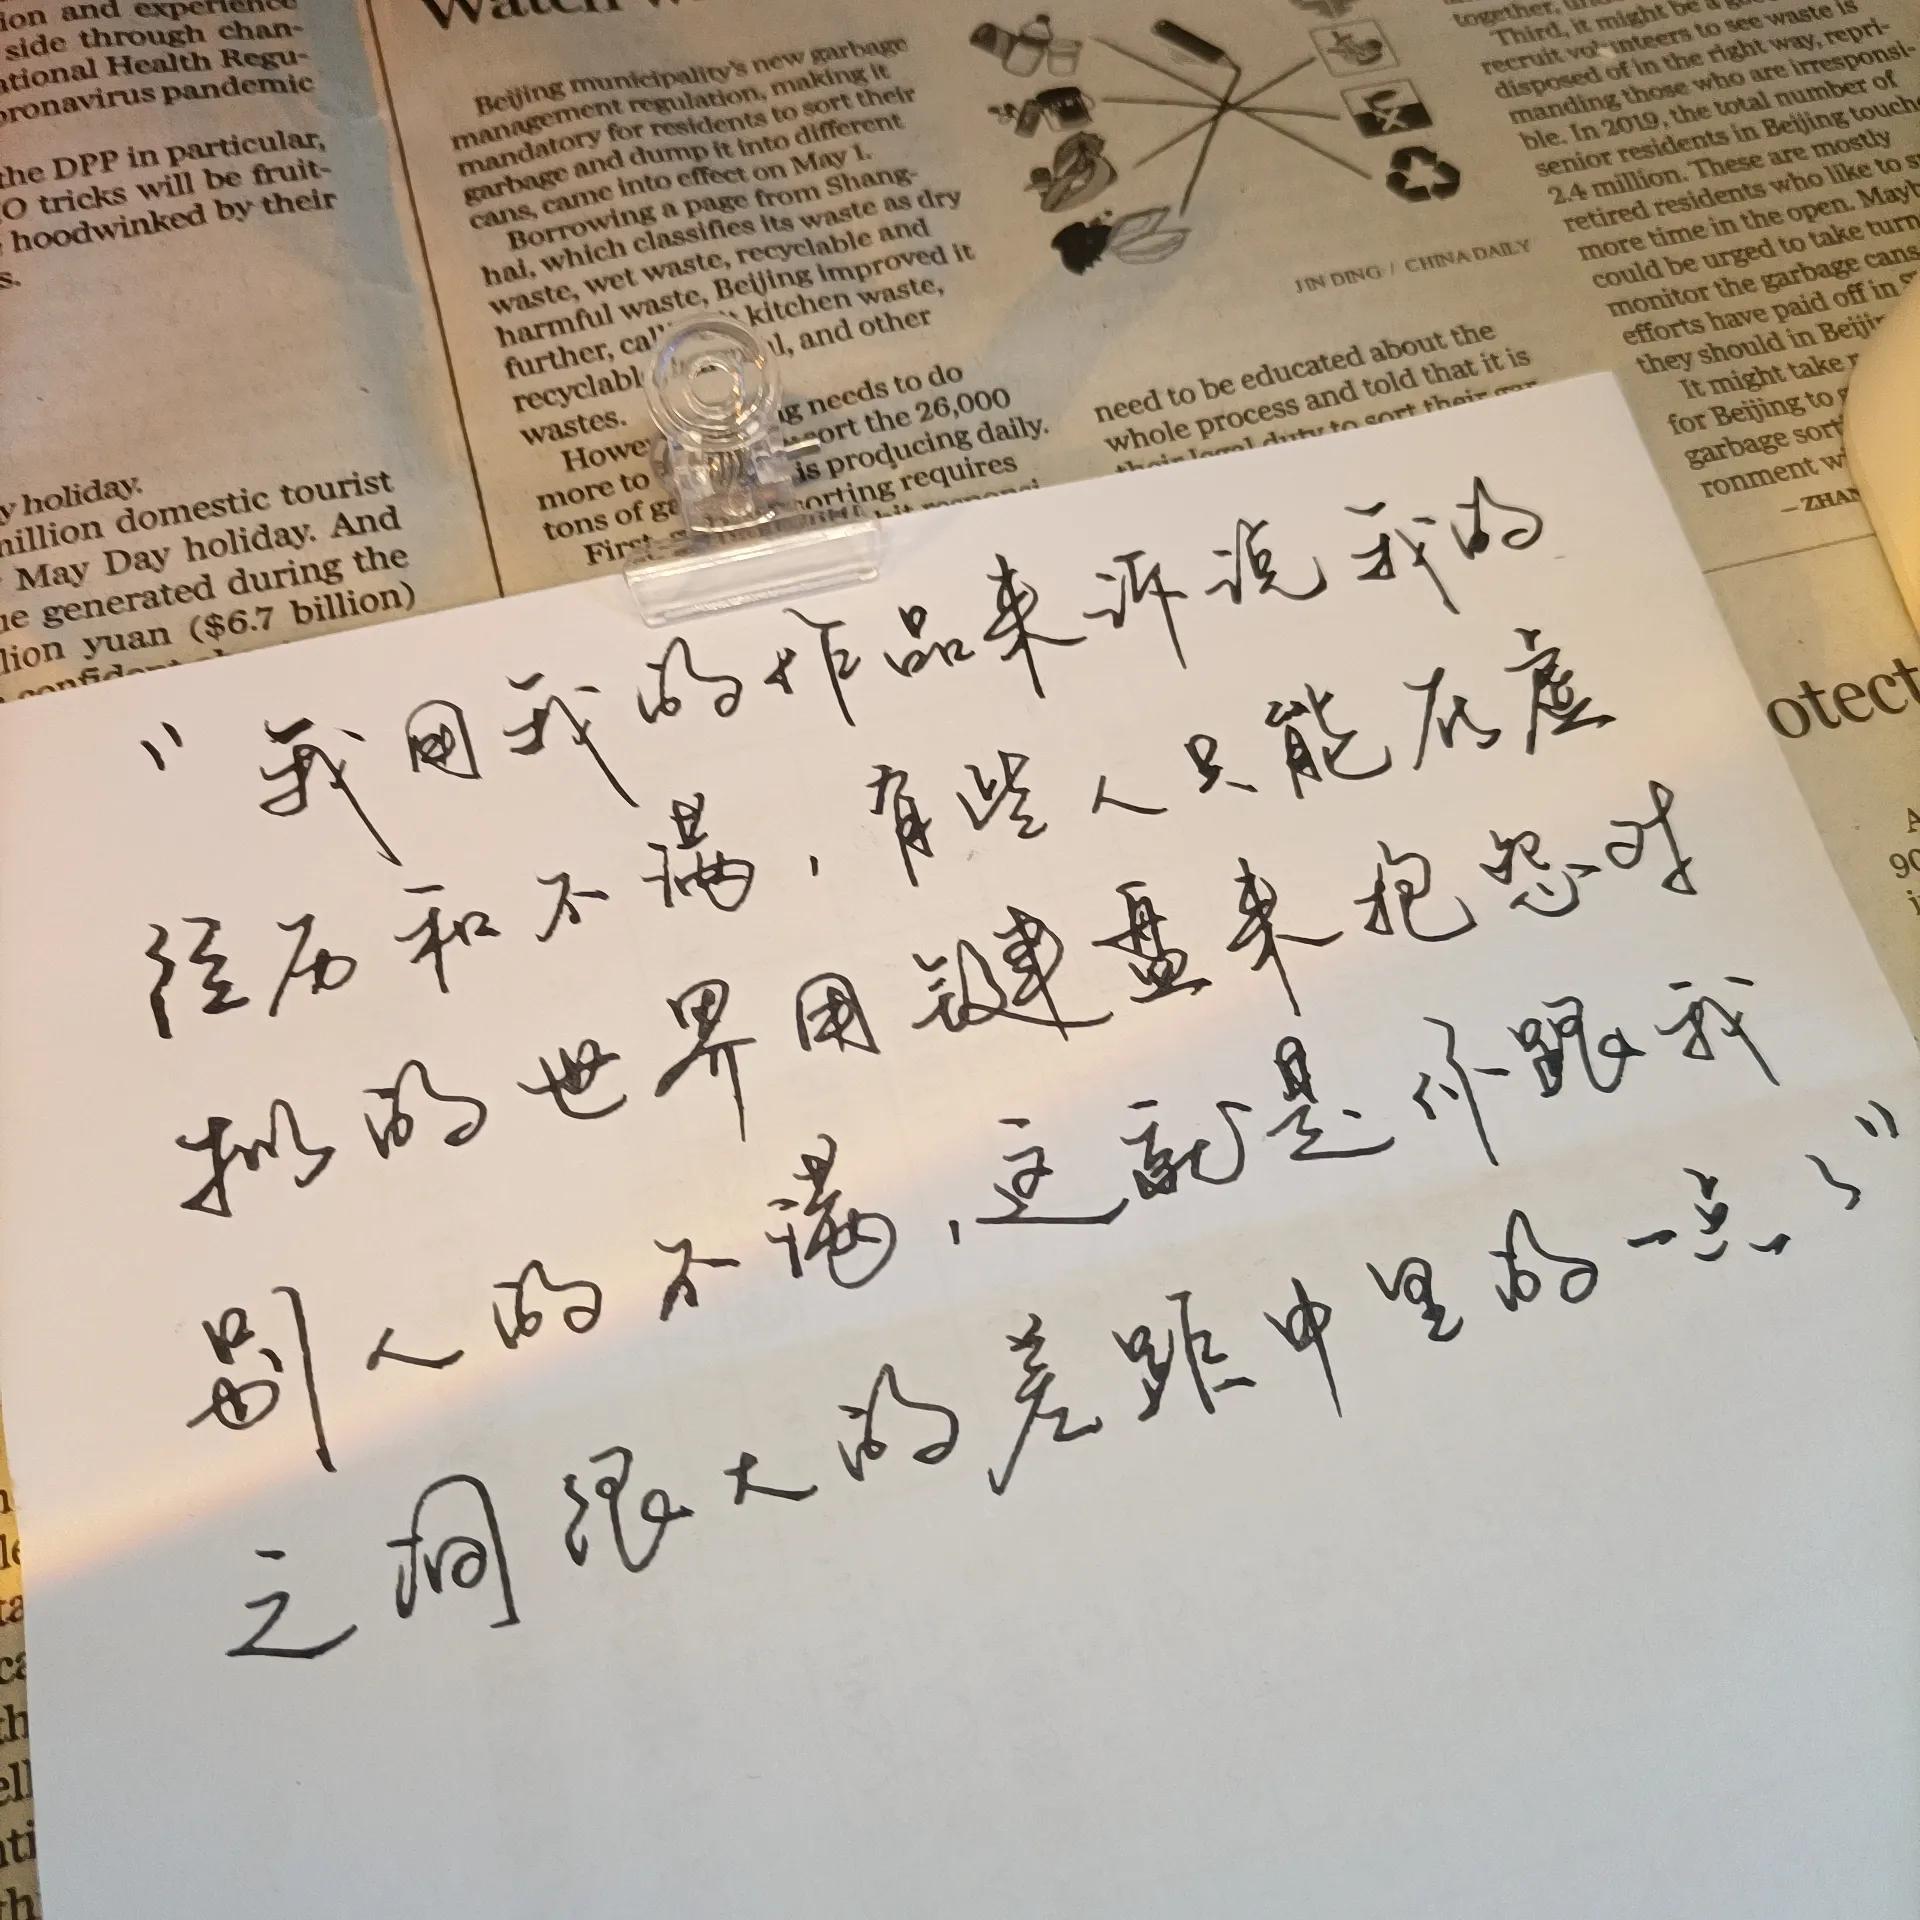 ion and experience
side through chan-
ational Health Regu-
oronavirus pandemic
the DPP in particular,
O tricks will be fruit-
hoodwinked by their
s.
y holiday.
million domestic tourist
May Day holiday. And
ue generated during the
lion yuan ($6.7 billion)
Watch
Beijing municipality's new garbage
management regulation, making it
mandatory for residents to sort their
garbage and dump it into different
cans, came into effect on May 1.
Borrowing a page from Shang-
hai, which classifies its waste as dry
waste, wet waste, recyclable and
harmful waste, Beijing improved it
further, kitchen waste,
recyclabl and other
wastes.
Howe ng needs to do
more to sort the 26,000
tons of ga is producing daily.
First sorting requires
JIN DING / CHINA DAILY
need to be educated about the
whole process and told that it is
their legal duty to sort their gar
together,
Third, it might be a
recruit volunteers to see waste is
disposed of in the right way, repri-
manding those who are irresponsi-
ble. In 2019, the total number of
senior residents in Beijing touche
2.4 million. These are mostly
retired residents who like to s
more time in the open. Mayb
could be urged to take turn
monitor the garbage cans
efforts have paid off in
they should in Beijin
It might take
for Beijing to
garbage sort
ronment wi
—ZHAN
otect
"我用我的作品来诉说我的
经历和不满,有些人只能在虚
拟的世界用键盘来抱怨对
别人的不满,这就是你跟我
之间很大的差距中里的一点。"